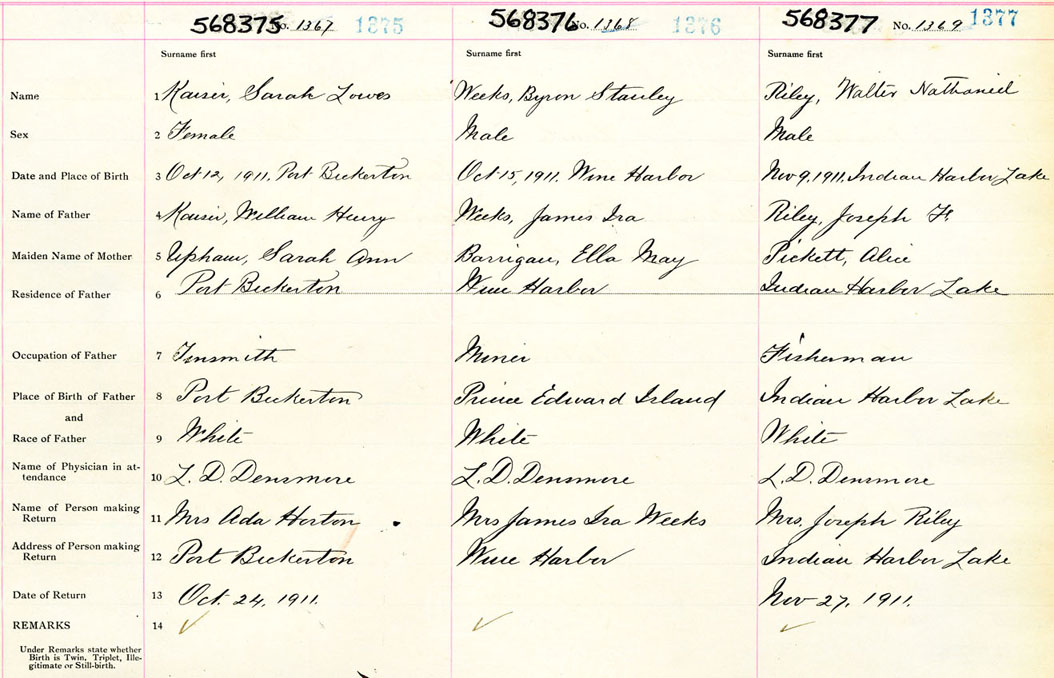 568375 No. 1367 1375 568376 No. 1368 1376 568377 No. 1369 1377
Surname first Surname first Surname first
Name 1 Kaiser, Sarah Lowes Weeks, Byron Stanley Riley, Walter Nathaniel
Sex 2 Female Male Male
Date and Place of Birth 3 Oct 12, 1911. Port Beckerton Oct 15, 1911. Wine Harbor Nov 9, 1911. Indian Harbor Lake
Name of Father 4 Kaiser, William Henry Weeks, James Ira Riley, Joseph F.
Maiden Name of Mother 5 Upham, Sarah Ann Barrigan, Ella May Pickett, Alice
Residence of Father 6 Port Beckerton Wine Harbor Indian Harbor Lake
Occupation of Father 7 Tinsmith Miner Fisherman
Place of Birth of Father 8 Port Beckerton Prince Edward Island Indian Harbor Lake
and
Race of Father 9 White White White
Name of Physician in at-
tendance 10 L. D. Densmore L. D. Densmore L. D. Densmore
Name of Person making
Return 11 Mrs Ada Horton Mrs James Ira Weeks Mrs. Joseph Riley
Address of Person making
Return 12 Port Beckerton Wine Harbor Indian Harbor Lake
Date of Return 13 Oct. 24, 1911. Nov 27, 1911.
REMARKS 14
Under Remarks state whether
Birth is Twin, Triplet, Ille-
gitimate or Still-birth.